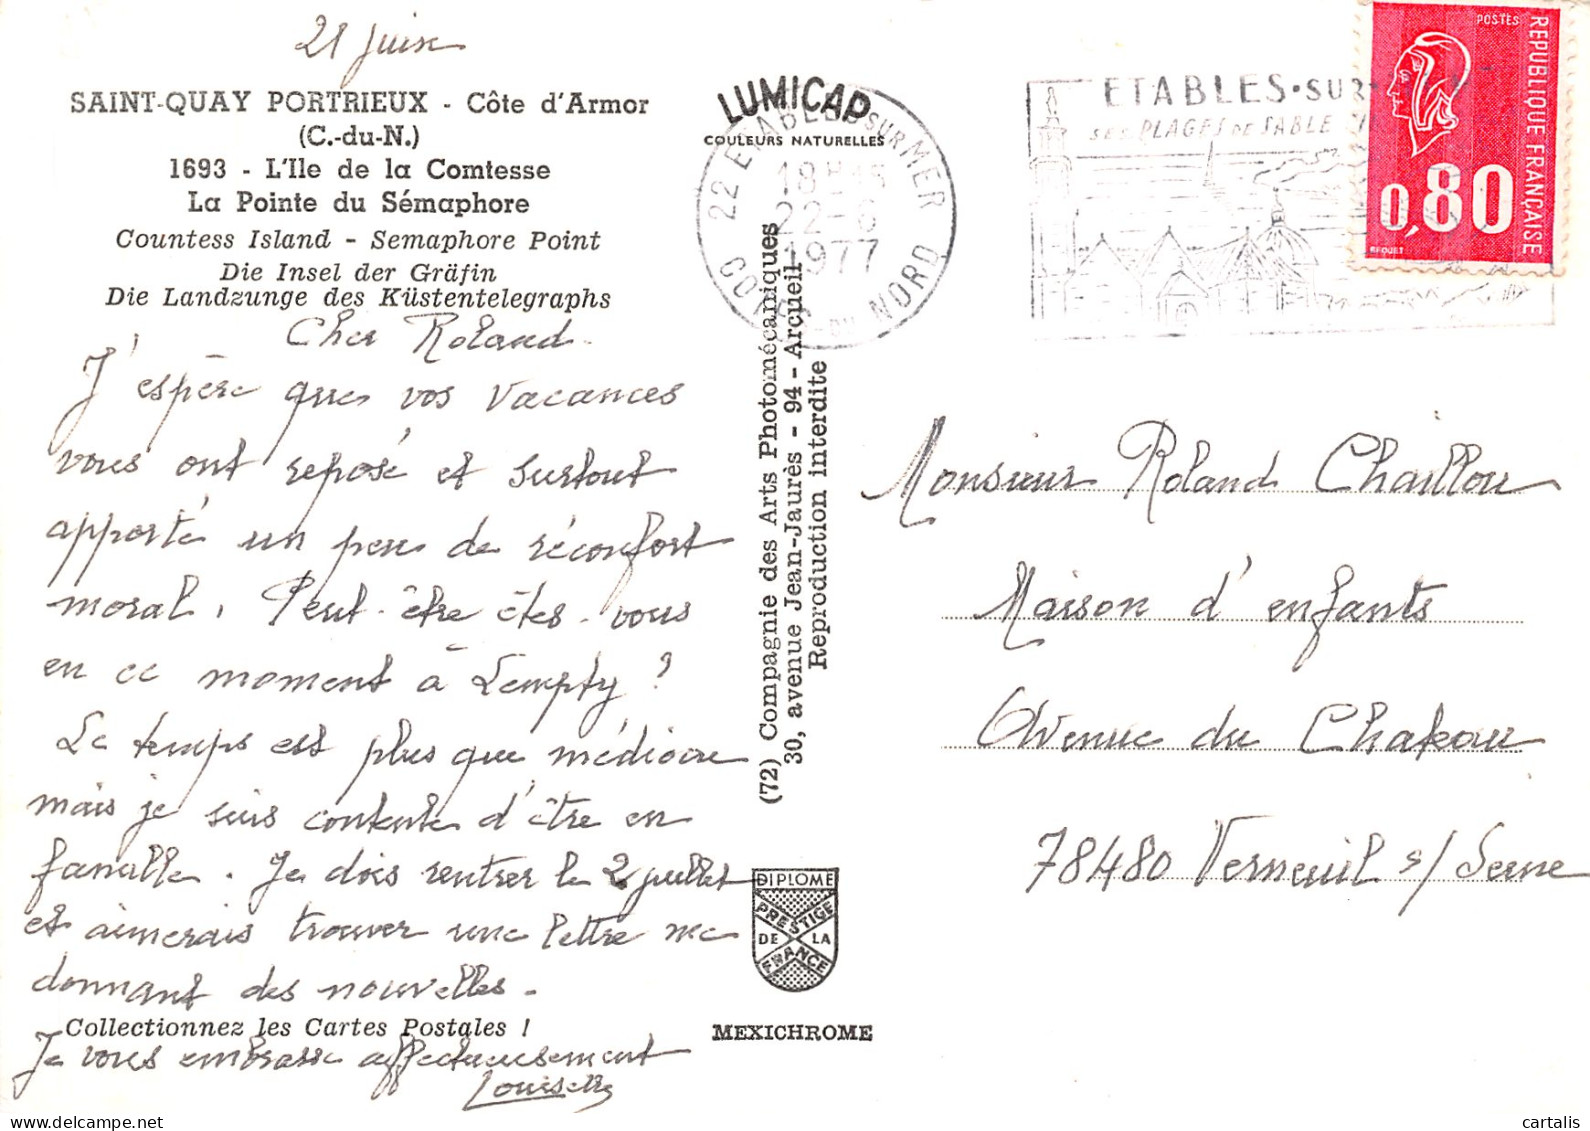 21 juin
SAINT-QUAY PORTRIEUX - Côte d'Armor
(C.-du-N.)
1693 - L'Ile de la Comtesse
La Pointe du Sémaphore
Countess Island - Semaphore Point
Die Insel der Gräfin
Die Landzunge des Küstentelegraphs
Cher Roland.
J'espère que vos vacances
vous ont reposé et surtout
apporté un peu de réconfort
moral. Peut-être êtes-vous
en ce moment à Lempty ?
Le temps est plus que médiocre
mais je suis contente d'être en
famille. Je dois rentrer le 2 juillet
et aimerais trouver une lettre me
donnant des nouvelles.
Collectionnez les Cartes Postales !
Je vous embrasse affectueusement
Louisette
LUMICAP
COULEURS NATURELLES
22 ETABLES-SUR-MER
18H45
22-6
1977
COTES-DU-NORD
(72) Compagnie des Arts Photomécaniques
30, avenue Jean-Jaurès - 94 - Arcueil
Reproduction interdite
DIPLOME
PRESTIGE
DE LA
FRANCE
MEXICHROME
ETABLES·SUR
SES PLAGES DE SABLE FI
POSTES
REPUBLIQUE FRANÇAISE
0,80
BEQUET
Monsieur Roland Chaillou
Maison d'enfants
Avenue du Chateau
78480 Verneuil s/ Seine
cartalis
www.delcampe.net